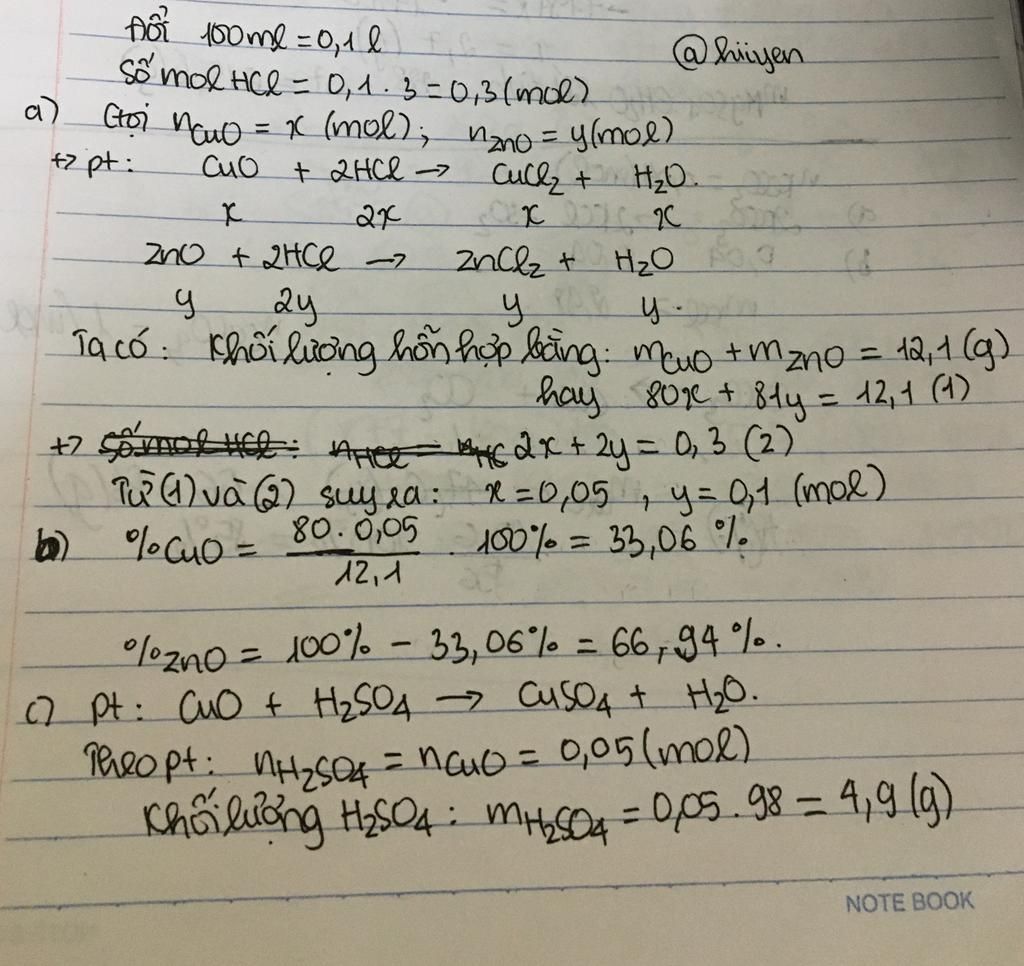 Đổi 100ml = 0,1 l
@hiiyen
Số mol HCl = 0,1 . 3 = 0,3 (mol)
a) Gọi nCuO = x (mol); nZnO = y (mol)
+> pt: CuO + 2HCl → CuCl₂ + H₂O.
x 2x x x
ZnO + 2HCl → ZnCl₂ + H₂O
y 2y y y.
Ta có: Khối lượng hỗn hợp bằng: mCuO + mZnO = 12,1 (g)
hay 80x + 81y = 12,1 (1)
+> Số mol HCl: nHCl = nHC 2x + 2y = 0,3 (2)
Từ (1) và (2) suy ra: x = 0,05 , y = 0,1 (mol)
b) %CuO = 80 . 0,05 / 12,1 . 100% = 33,06 %
%ZnO = 100% - 33,06% = 66,94 %.
c) pt: CuO + H₂SO₄ → CuSO₄ + H₂O.
Theo pt: nH₂SO₄ = nCuO = 0,05 (mol)
Khối lượng H₂SO₄: mH₂SO₄ = 0,05 . 98 = 4,9 (g)
NOTE BOOK